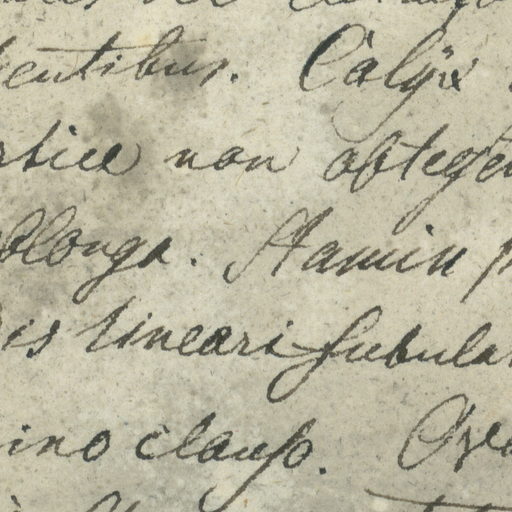 entibus. Calyx
rtice non obtege
blonga. Stamin
is lineari subula
ino clauso. Ova